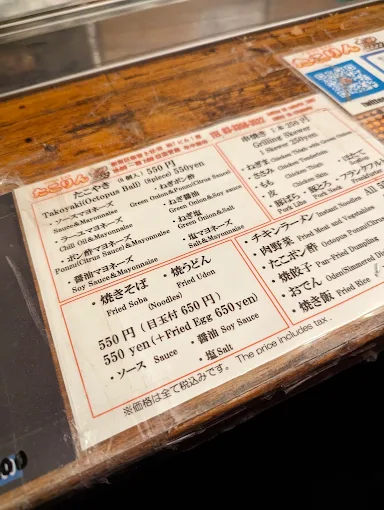 たこりん
たこやき (8個入) 550円
Takoyaki(Octopus Ball) (8piece) 550yen
・ソースマヨネーズ
Sauce&Mayonnaise
・ラーユマヨネーズ
Chili Oil&Mayonnaise
・ポン酢マヨネーズ
Ponzu(Citrus Sauce)&Mayonnaise
・醤油マヨネーズ
Soy Sauce&Mayonnaise
・ねぎポン酢
Green Onion&Ponzu(Citrus Sauce)
・ねぎ醤油
Green Onion&Soy sauce
・ねぎ塩
Green Onion&Salt
・塩マヨネーズ
Salt&Mayonnaise
・焼きそば ・焼うどん
Fried Soba Fried Udon
(Noodles)
550円 (目玉付 650円)
550 yen (+Fried Egg 650yen)
・ソース Sauce ・醤油 Soy Sauce
・塩 Salt
串焼き 1本 250円
Grilling Skewer
1 Skewer 250yen
・ねぎま
・ささみ Chicken Tenderloin
・もも Chicken Thigh
・皮 Chicken Skin
・豚ばら ・豚とろ
・ほたて
・フランクフルト
・チキンラーメン Instant Noodles
・肉野菜 Fried Meat and Vegetables
・たこポン酢 Octopus Ponzu
・焼餃子 Pan-Fried Dumpling
・おでん Oden
・焼き飯 Fried Rice
※価格は全て税込みです。 The price includes tax.